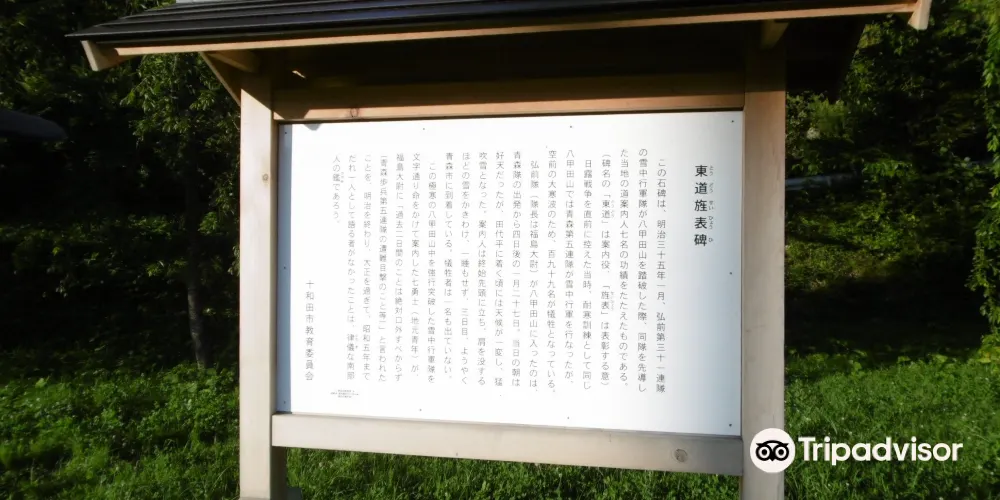 東道旌表碑
とう どう せい ひょう ひ
この石碑は、明治三十五年一月、弘前第三十一連隊
の雪中行軍隊が八甲田山を踏破した際、同隊を先導し
た当地の道案内人七名の功績をたたえたものである。
(碑名の「東道」は案内役、「旌表」は表彰する意)
日露戦争を直前に控えた当時、耐寒訓練として同じ
八甲田山では青森第五連隊が雪中行軍を行なったが、
空前の大寒波のため、百九十九名が犠牲となっている。
弘前隊(隊長は福島大尉)が八甲田山に入ったのは、
青森隊の出発から四日後の一月二十七日。当日の朝は
好天だったが、田代平に着く頃には天候が一変し、猛
吹雪となった。案内人は終始先頭に立ち、肩を没する
ほどの雪をかきわけ、一睡もせず、三日目、ようやく
青森市に到着している。犠牲者は一名も出ていない。
この極寒の八甲田山中を強行突破した雪中行軍隊を
文字通り命をかけて案内した七勇士(地元青年)が、
福島大尉に「過去二日間のことは絶対口外すべからず
(青森歩兵第五連隊の遭難目撃のこと等)」と言われた
ことを、明治を終わり、大正を過ぎて、昭和五年まで
だれ一人として語る者がなかったことは、律儀な南部
人の鑑であろう。
十和田市教育委員会
Tripadvisor